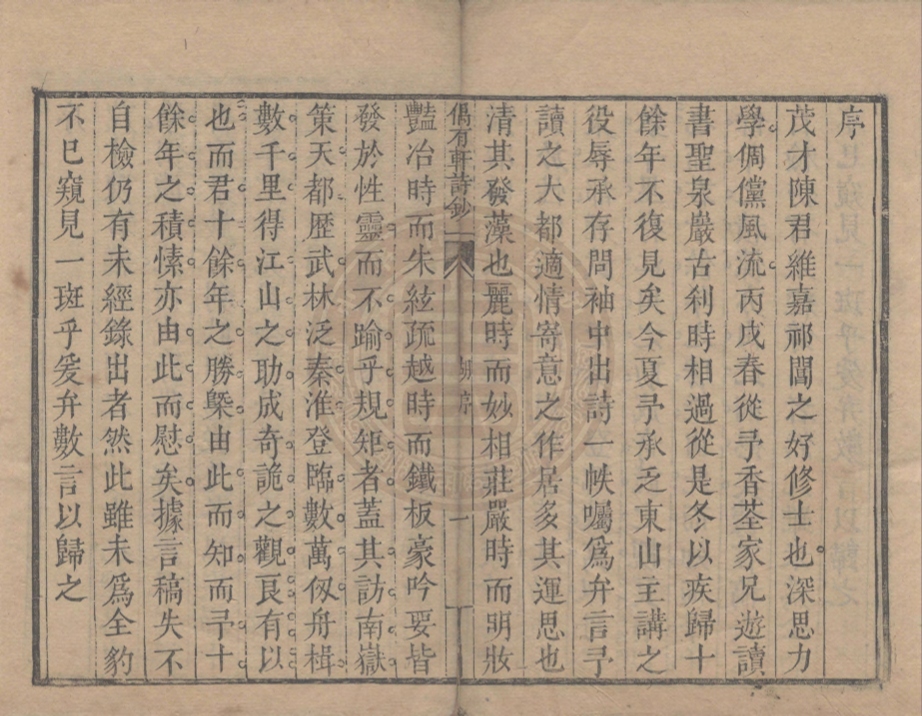 序
茂才陳君維嘉祁閶之好修士也深思力
學倜儻風流丙戌春從予香荃家兄遊讀
書聖泉巖古刹時相過從是冬以疾歸十
餘年不復見矣今夏予承乏東山主講之
役辱承存問袖中出詩一帙囑爲弁言予
讀之大都適情寄意之作居多其運思也
清其發藻也麗時而妙相莊嚴時而明妝
偶有軒詩鈔 序 一
豔冶時而朱絃疏越時而鐵板豪吟要皆
發於性靈而不踰乎規矩者蓋其訪南嶽
策天都歷武林泛秦淮登臨數萬仭舟楫
數千里得江山之助成奇詭之觀良有以
也而君十餘年之勝槩由此而知而予十
餘年之積愫亦由此而慰矣據言稿失不
自檢仍有未經錄出者然此雖未爲全豹
不已窺見一斑乎爰弁數言以歸之